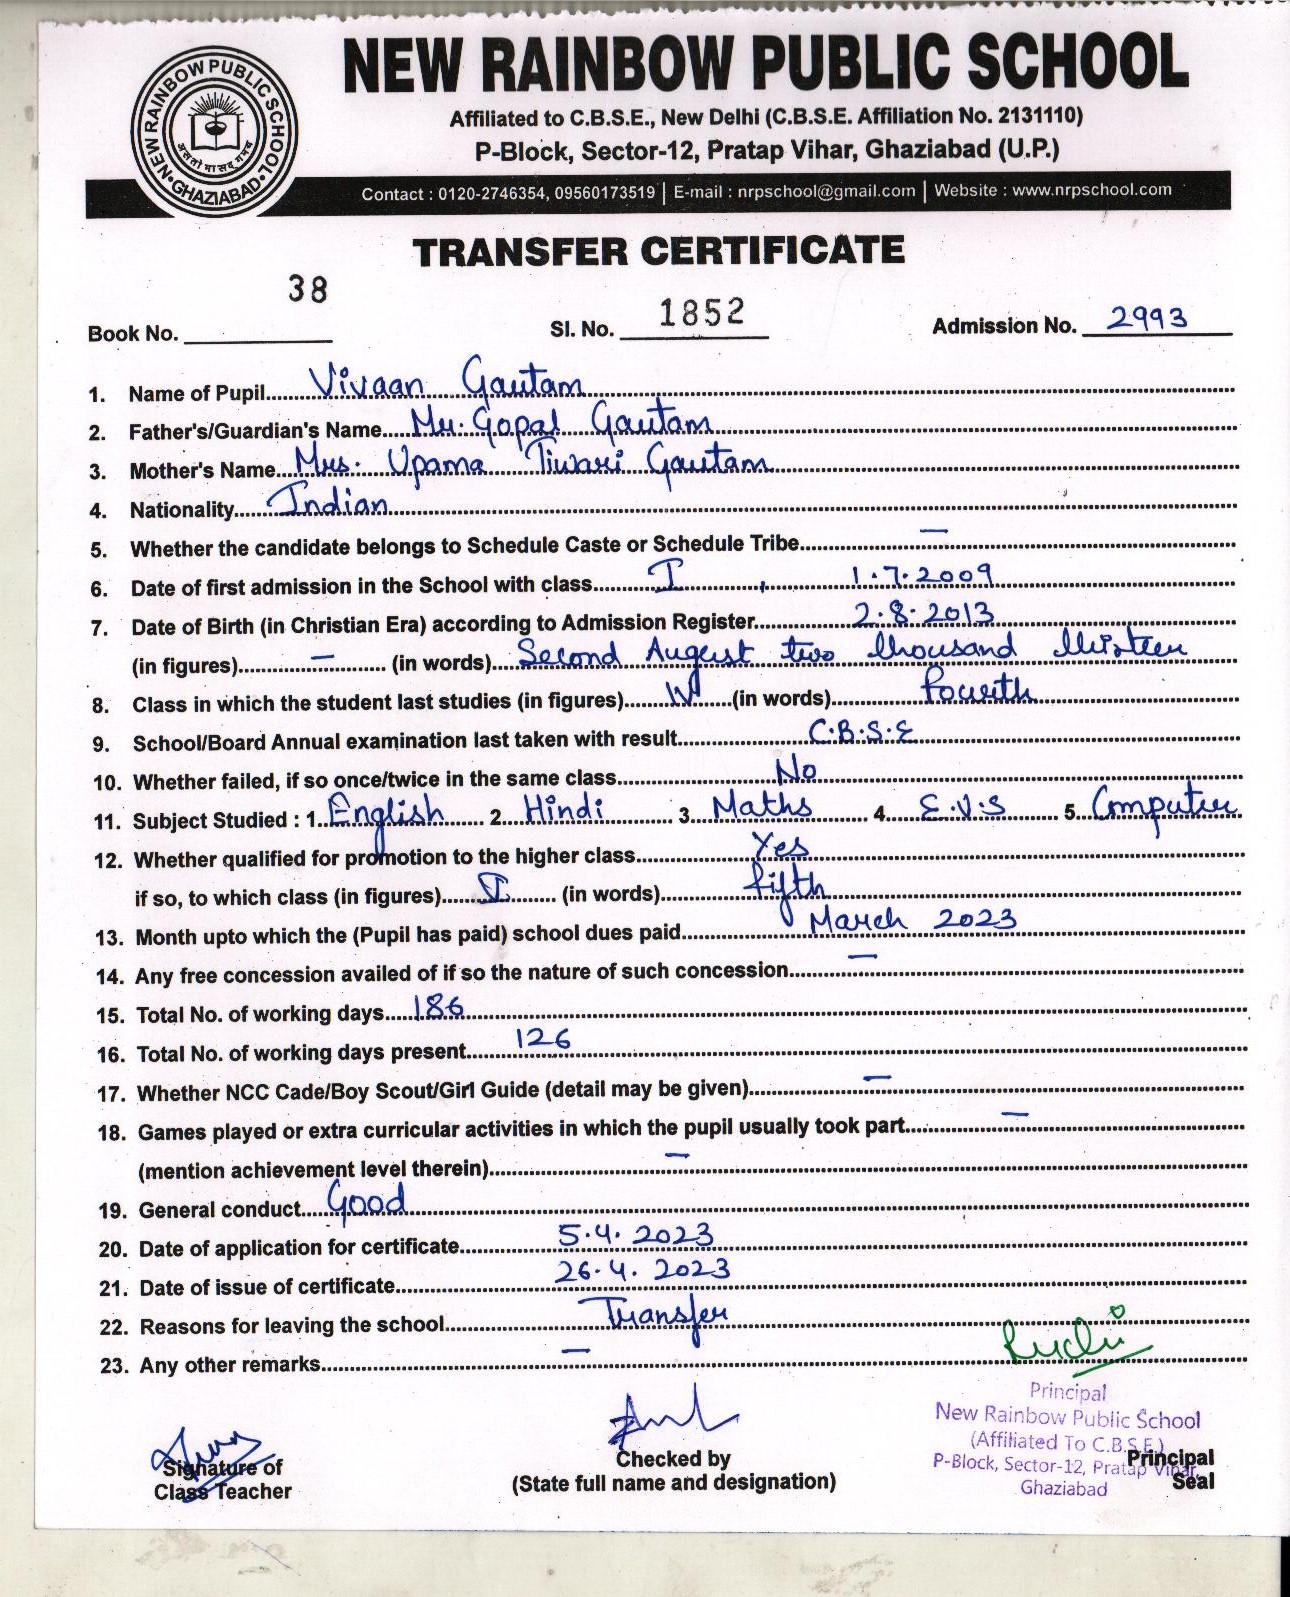 NEW RAINBOW PUBLIC SCHOOL
Affiliated to C.B.S.E., New Delhi (C.B.S.E. Affiliation No. 2131110)
P-Block, Sector-12, Pratap Vihar, Ghaziabad (U.P.)
Contact : 0120-2746354, 09560173519 | E-mail : nrpschool@gmail.com | Website : www.nrpschool.com
NEW RAINBOW PUBLIC SCHOOL
• GHAZIABAD •
TRANSFER CERTIFICATE
Book No. 38 Sl. No. 1852 Admission No. 2993
1. Name of Pupil Vivaan Gautam
2. Father's/Guardian's Name Mr. Gopal Gautam
3. Mother's Name Mrs. Upama Tiwari Gautam
4. Nationality Indian
5. Whether the candidate belongs to Schedule Caste or Schedule Tribe —
6. Date of first admission in the School with class I, 1.7.2009
7. Date of Birth (in Christian Era) according to Admission Register 2.8.2013
(in figures) — (in words) Second August two thousand thirteen
8. Class in which the student last studies (in figures) IV (in words) Fourth
9. School/Board Annual examination last taken with result C.B.S.E
10. Whether failed, if so once/twice in the same class No
11. Subject Studied : 1. English 2. Hindi 3. Maths 4. E.V.S 5. Computer
12. Whether qualified for promotion to the higher class Yes
if so, to which class (in figures) V (in words) fifth
13. Month upto which the (Pupil has paid) school dues paid March 2023
14. Any free concession availed of if so the nature of such concession —
15. Total No. of working days 186
16. Total No. of working days present 126
17. Whether NCC Cade/Boy Scout/Girl Guide (detail may be given) —
18. Games played or extra curricular activities in which the pupil usually took part —
(mention achievement level therein) —
19. General conduct Good
20. Date of application for certificate 5.4.2023
21. Date of issue of certificate 26.4.2023
22. Reasons for leaving the school Transfer
23. Any other remarks —
Signature of
Class Teacher
Checked by
(State full name and designation)
Principal
New Rainbow Public School
(Affiliated To C.B.S.E.)
P-Block, Sector-12, Pratap Vihar,
Ghaziabad
Principal
Seal